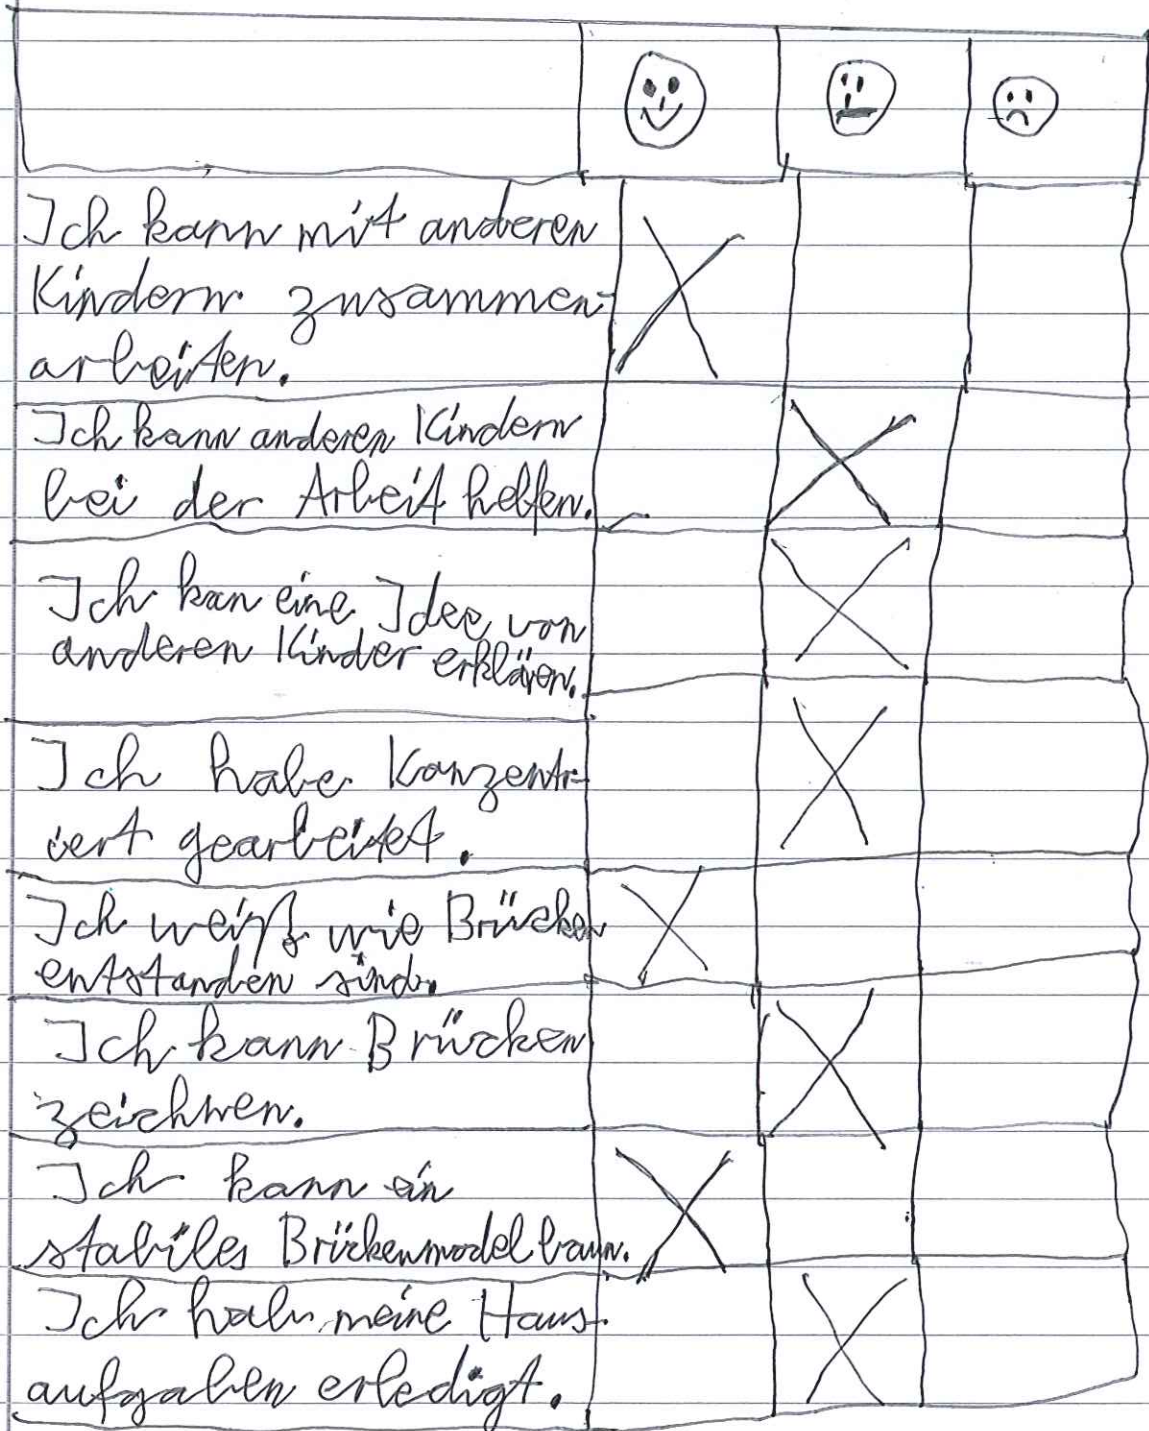 Ich kann mit anderen
Kindern zusammen-
arbeiten.
Ich kann anderen Kindern
bei der Arbeit helfen.
Ich kan eine Idee von
anderen Kinder erklären.
Ich habe Konzentr-
iert gearbeitet.
Ich weiß wie Brücken
entstanden sind.
Ich kann Brücken
zeichnen.
Ich kann ein
stabiles Brückenmodel baun.
Ich habe meine Haus-
aufgaben erledigt.